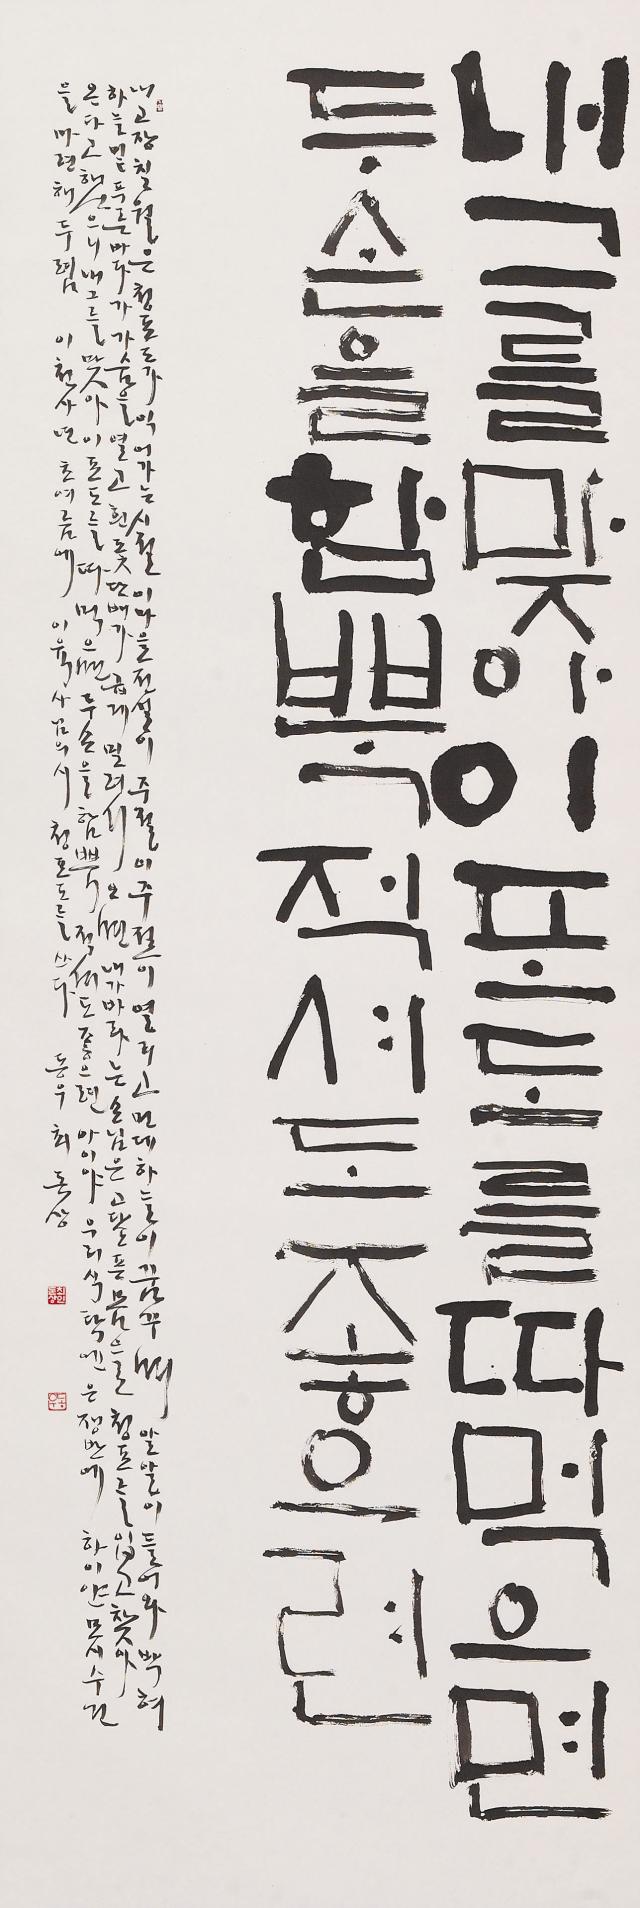 내그를맞아이포도를따먹으면
두손을함뿍적셔도좋으련
내고장칠월은청포도가익어가는시절 이마을전설이 주절이주절이 열리고 먼데하늘이 꿈꾸며 알알이 들어와 박혀
하늘밑푸른바다가가슴을 열고 흰돛단배가 곱게 밀려서 오면 내가바라는 손님은 고달픈몸으로 청포를 입고 찾아
온다고 했으니 내그를 맞아 이 포도를 따먹으면 두손을 함뿍 적셔도 좋으련 아이야 우리식탁엔 은쟁반에 하이얀 모시수건
을 마련해 두렴 이천사년 초여름에 이육사님의시 청포도를 쓰다 동우 최돈상